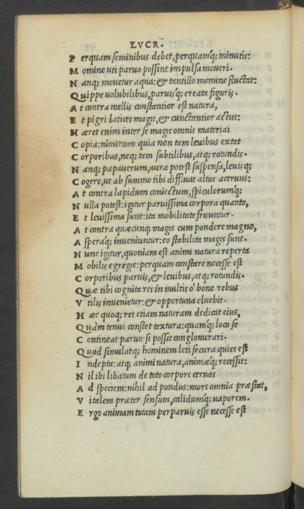 LVCR.
P erquam seminibus debet, perquamq; minutis:
M omine uti paruo possint impulsa moueri.
N anq; mouetur aqua: & tantillo momine fluctat:
Q uippe uolubilibus, paruisq; creata figuris.
A t contra mellis constantior est natura,
E t pigri latices magis, & cunctantior actus:
H aeret enim inter se magis omnis materiai
C opia: nimirum quia non tam leuibus extet
C orporibus, neq; tam subtilibus, atq; rotundis.
N anq; papauerum, aura potest suspensa, leuisq;
C ogere, ut ab summo tibi diffluat altus aceruus:
A t contra lapidum coniectum, spiculorumq;
N ulla potest: igitur paruissima corpora quanto,
E t leuissima sunt: ita mobilitate fruuntur.
A t contra quaecunq; magis cum pondere magno,
A speraq; inueniuntur: eo stabilita magis sunt.
N unc igitur, quoniam est animi natura reperta
M obilis egregie: perquam constare necesse est
C orporibus paruis, & leuibus, atq; rotundis.
Q uae tibi cognita res in multis ô bone rebus
V tilis inuenietur: & opportuna cluebit.
H aec quoq; res etiam naturam dedicat eius,
Q uàm tenui constet textura: quamq; loco se
C ontineat paruo: si possit conglomerari.
Q uod simulatq; hominem leti secura quies est
I ndepta: atq; animi natura, animaeq; recessit:
N il ibi libatum de toto corpore cernas
A d speciem: nihil ad pondus: mors omnia praestat,
V italem praeter sensum, calidumq; uaporem.
E rgo animam totam perparuis esse necesse est